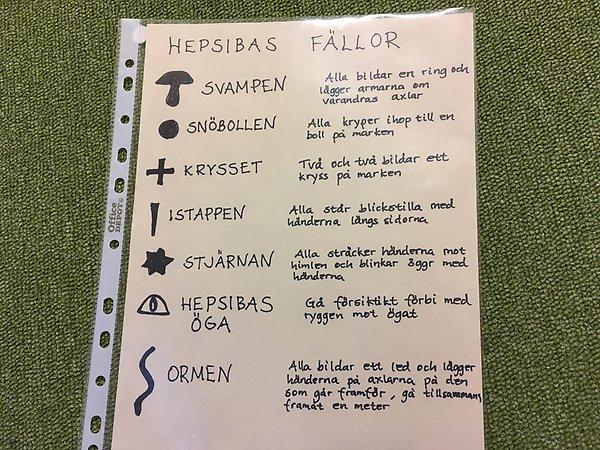 HEPSIBAS FÄLLOR
SVAMPEN
Alla bildar en ring och
lägger armarna om
varandras axlar
SNÖBOLLEN
Alla kryper ihop till en
boll på marken
KRYSSET
Två och två bildar ett
kryss på marken
ISTAPPEN
Alla står blickstilla med
händerna längs sidorna
STJÄRNAN
Alla sträcker händerna mot
himlen och blinkar 3ggr med
händerna
HEPSIBAS
ÖGA
Gå försiktikt förbi med
ryggen mot ögat
ORMEN
Alla bildar ett led och lägger
händerna på axlarna på den
som går framför, gå tillsammans
framåt en meter
Office
DEPOT